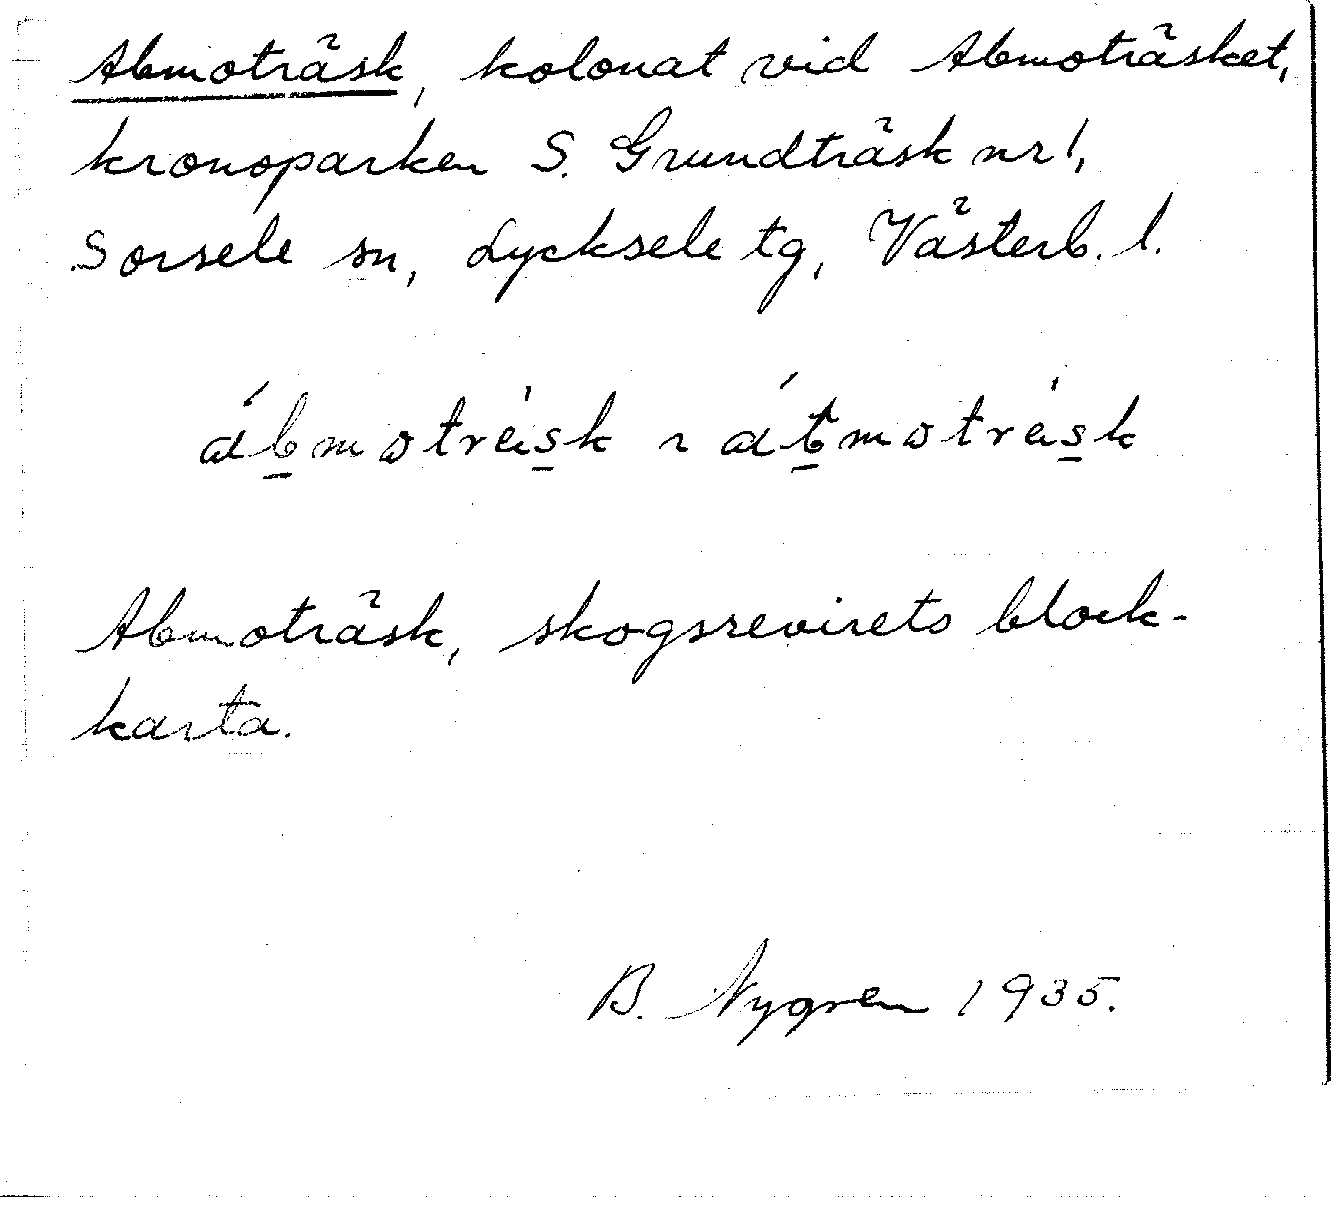 Abmoträsk, kolonat vid Abmoträsket,
kronoparken S. Grundträsk nr 1,
Sorsele sn, Lycksele tg, Västerb. l.
Abmoträsk, skogsrevirets block-
karta.
B. Nygren 1935.